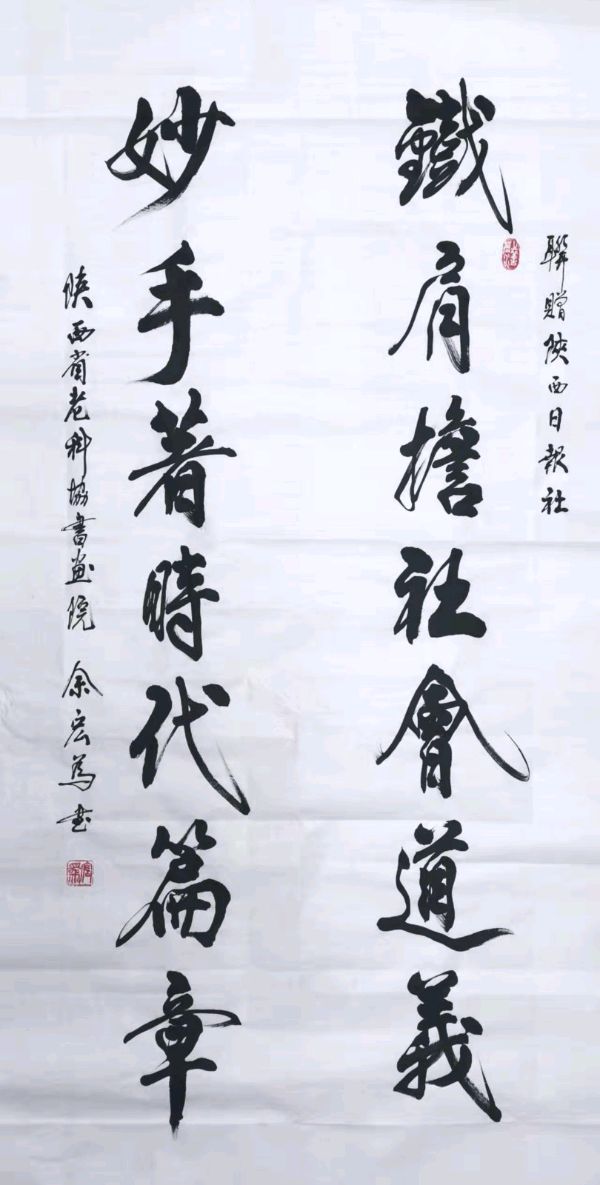 聯贈陝西日報社
鐵肩擔社會道義
妙手著時代篇章
陝西省老科協書画院 余宏為书